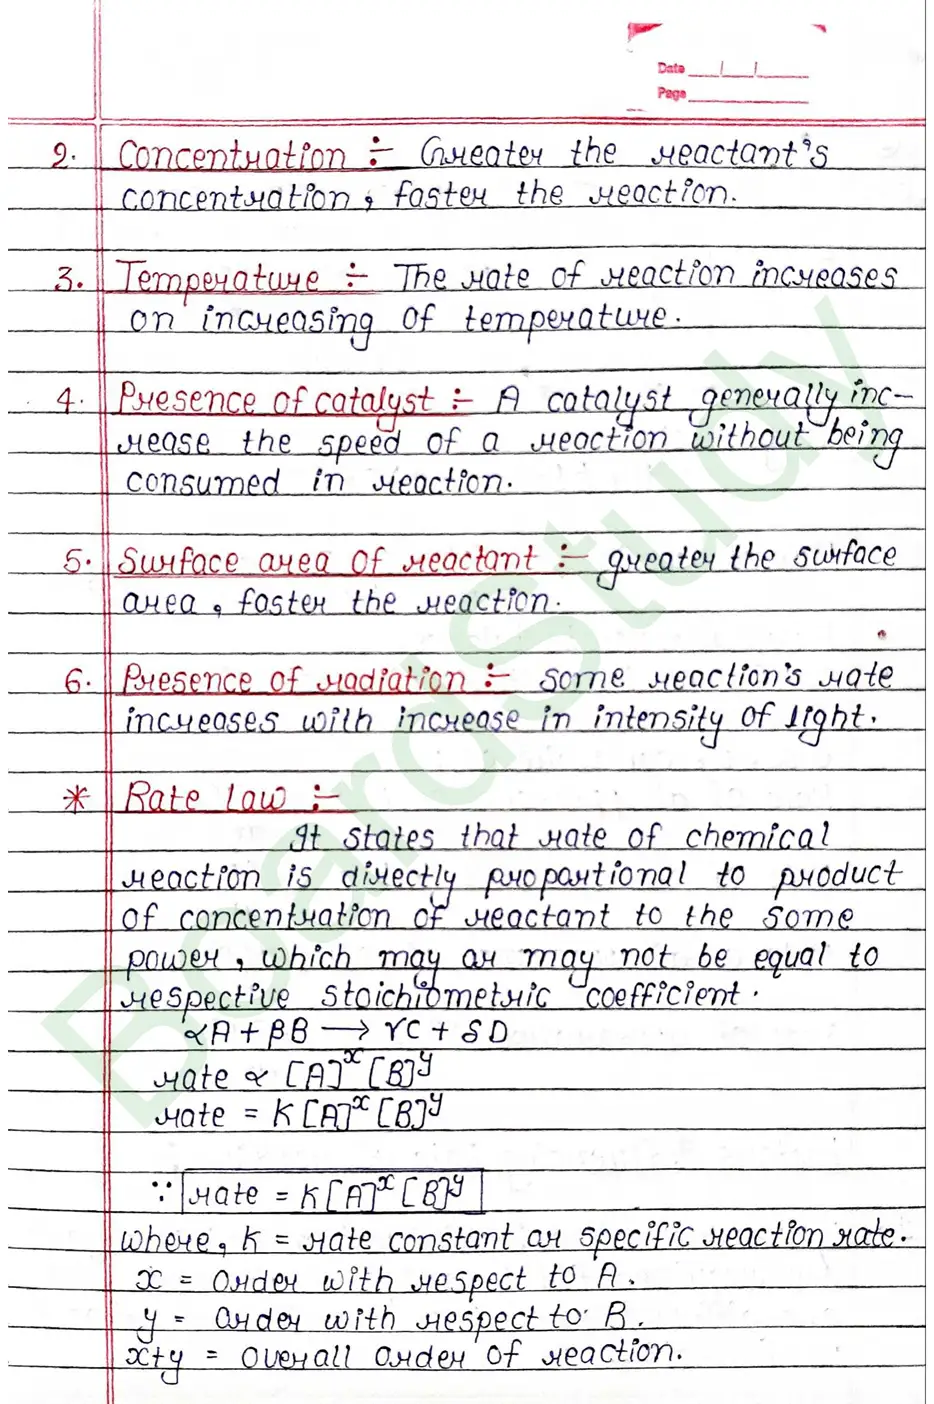 Date __/__/__
Page
2. Concentration :- Greater the reactant's
concentration, faster the reaction.
3. Temperature :- The rate of reaction increases
on increasing of temperature.
4. Presence of catalyst :- A catalyst generally inc-
rease the speed of a reaction without being
consumed in reaction.
5. Surface area of reactant :- greater the surface
area, faster the reaction.
6. Presence of radiation :- Some reaction's rate
increases with increase in intensity of light.
* Rate law :-
It states that rate of chemical
reaction is directly proportional to product
of concentration of reactant to the some
power, which may or may not be equal to
respective stoichiometric coefficient.
αA + βB → γC + δD
rate ∝ [A]^x [B]^y
rate = K[A]^x [B]^y
∵ rate = K[A]^x [B]^y
where, K = rate constant or specific reaction rate.
x = Order with respect to A.
y = Order with respect to B.
x+y = Overall order of reaction.
BoardStudy